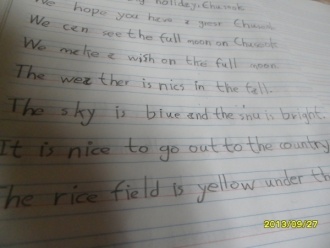 holiday. Chuseok
We hope you have a great Chuseok
We can see the full moon on Chuseok
We make a wish on the full moon
The weather is nics in the fell.
The sky is blue and the snu is bright.
It is nice to go out to the country
The rice field is yellow under th
2013/09/27